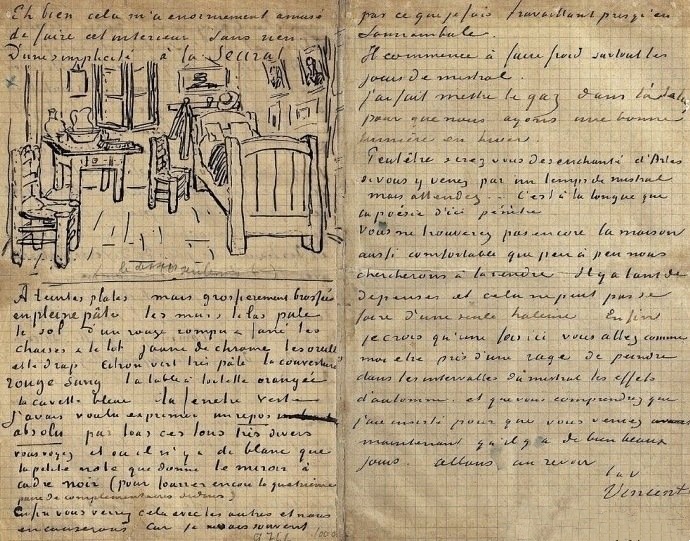 Eh bien cela m'a enormement amusé
de faire cet interieur sans rien.
D'une simplicité à la Seurat
À teintes plates mais grossierement brossées
en pleine pâte les murs lilas pale
le sol d'un rouge rompu & fané les
chaises & le lit jaune de chrome les oreillers
et le drap citron vert très pâle la couverture
rouge sang la table à toilette orangée
la cuvette bleue la fenetre verte
J'avais voulu exprimer un repos
absolu par tous ces tons très divers
vous voyez et où il n'y a de blanc que
la petite note que donne le miroir à
cadre noir (pour fourrer encore la quatrième
paire de complementaires dedans)
Enfin vous verrez cela avec les autres et nous
en causerons car je ne sais souvent
par ce que je fais travaillant presqu'en
somnambule.
Il commence à faire froid surtout les
jours de mistral.
J'ai fait mettre le gaz dans l'atelier
pour que nous ayons une bonne
lumière en hiver
Peutêtre serez vous desenchanté d'Arles
si vous y venez par un temps de mistral
mais attendez... C'est à la longue que
la poésie d'ici pénètre
Vous ne trouverez pas encore la maison
aussi comfortable que peu à peu nous
chercherons à la rendre Il y a tant de
depenses et cela ne peut pas se
faire d'une seule haleine Enfin
je crois qu'une fois ici vous allez comme
moi etre pris d'une rage de peindre
dans les intervalles du mistral les effets
d'automne. et que vous comprendrez que
j'ai insisté pour que vous veniez
maintenant qu'il y a de bien beaux
jours. allons au revoir
t. à v.
Vincent